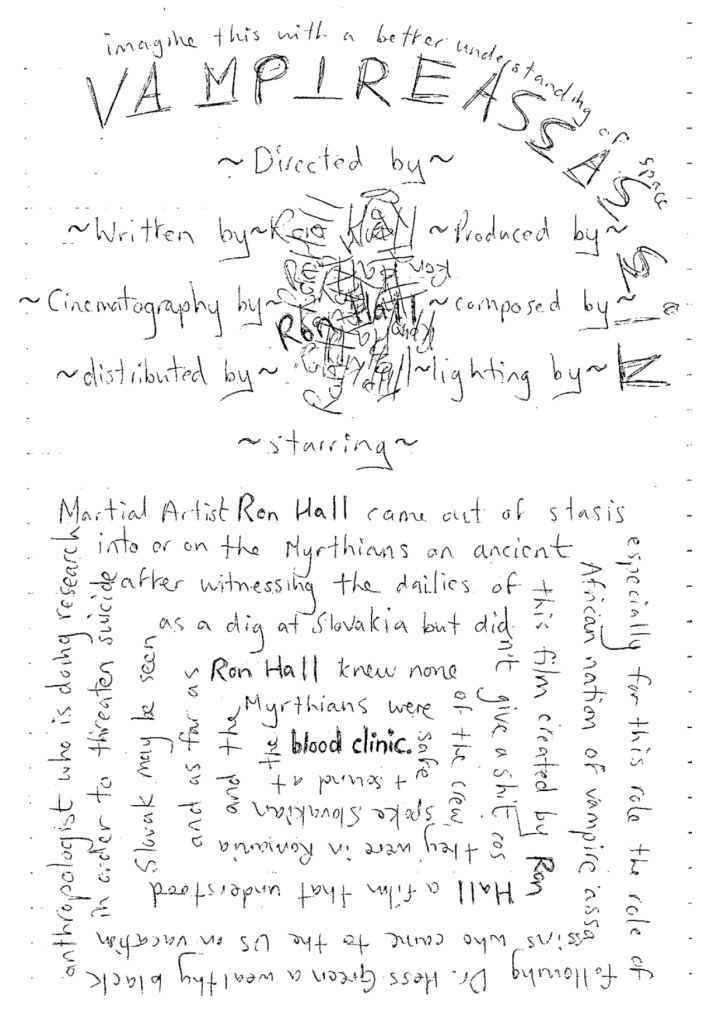 imagine this with a better understanding of space
VAMPIREASSASSiN
~Directed by~
~Written by~ Ron Hall ~Produced by~
~Cinematography by~ Ron Hall ~composed by~
~distributed by~ Ron Hall ~lighting by~
~starring~
Martial Artist Ron Hall came out of stasis
especially for this role the role of
following Dr. Hess Green a wealthy black
anthropologist who is doing research
into or on the Myrthians an ancient
African nation of vampire assa
ssins who came to the US on vacation
in order to threaten suicide
after witnessing the dailies of
this film created by Ron
Hall a film that understood
Slovak may be seen
as a dig at Slovakia but did
n't give a shit cos
they were in Romania
and as far as
Ron Hall knew none
of the crew
spoke Slovakian
and the
Myrthians were
safe
+ sound at
the
blood clinic.